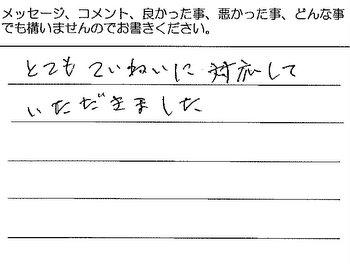 メッセージ、コメント、良かった事、悪かった事、どんな事
でも構いませんのでお書きください。
とてもていねいに対応して
いただきました